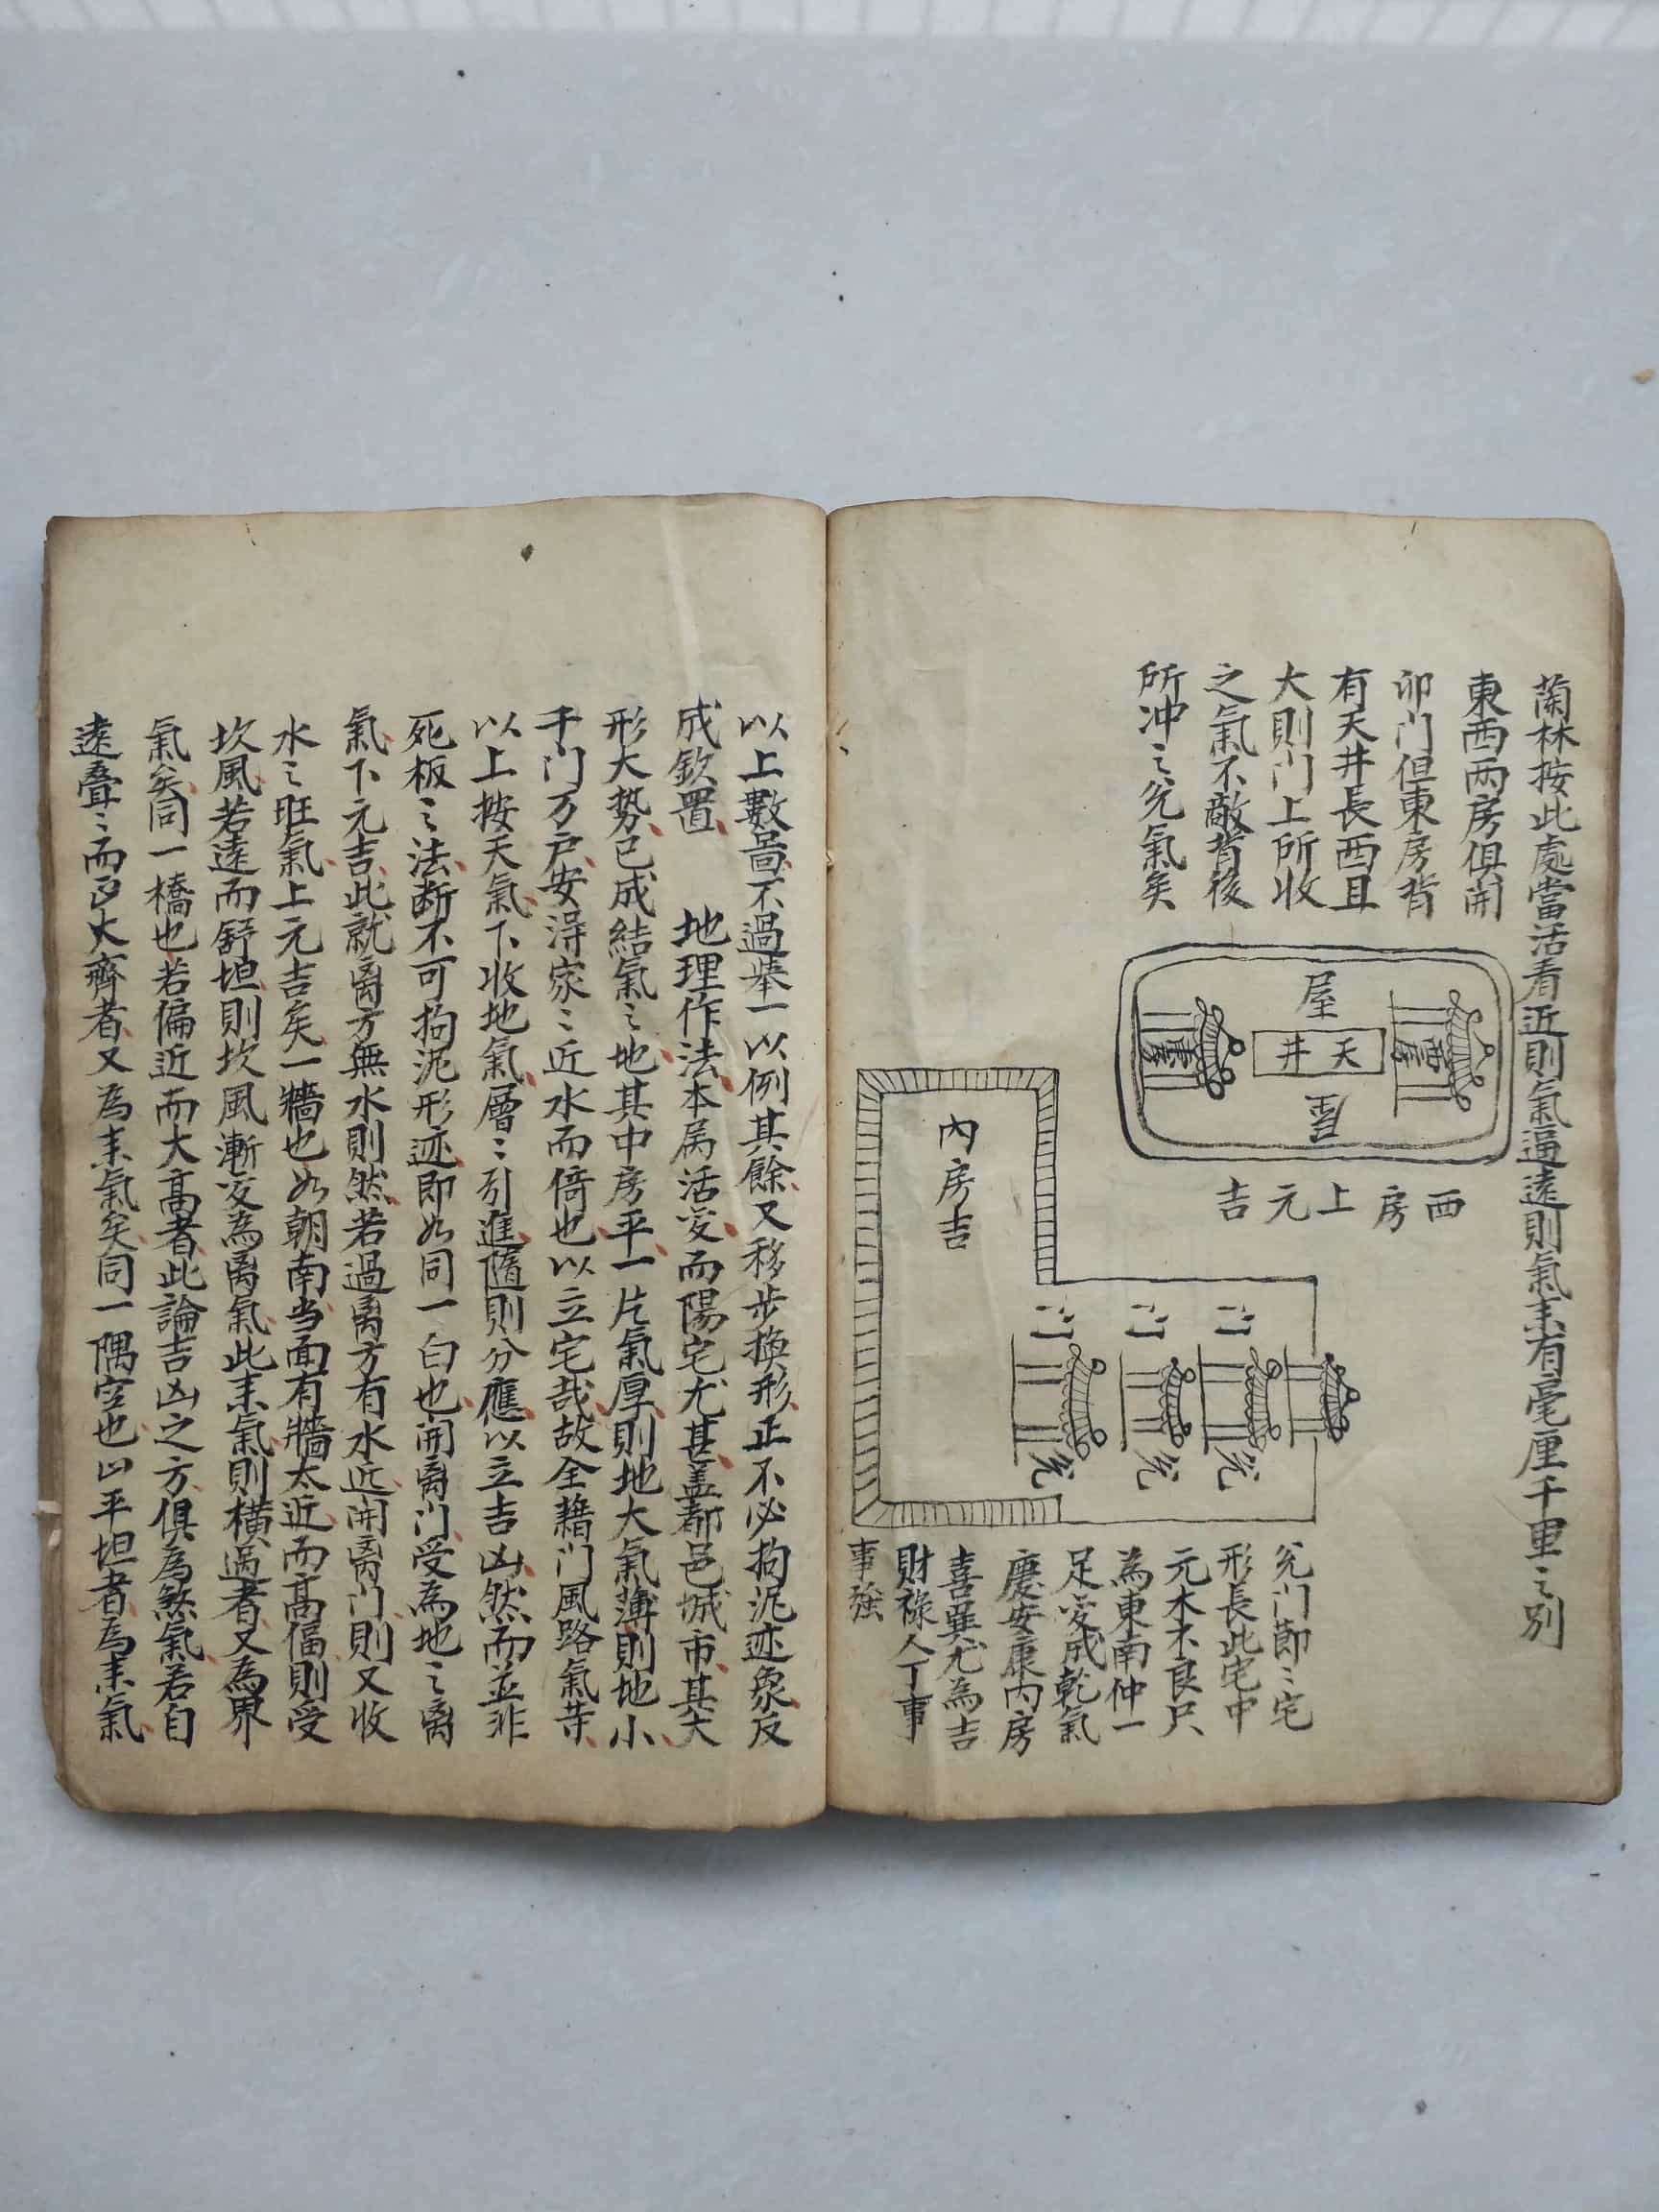 蘭林按此處當活看近則氣逼遠則氣耒有毫厘千里之別
東西两房俱開
卯门但東房背
有天井長西且
大則门上所收
之氣不敵背後
所冲之兊氣矣
屋
天井
西房
東房
西房上元吉
內房吉
兊门節〻宅
形長此宅中
元木不良只
為東南仲一
足变成乾氣
慶安康内房
喜巽尤為吉
財祿人丁事
事強
以上數啚不過舉一以例其餘又移步換形正不必拘泥迹象反
成欽置　地理作法本属活变而陽宅尤甚盖都邑城市其大
形大势已成結氣之地其中房平一片氣厚則地大氣薄則地小
千门万户安淂家〻近水而倚也以立宅哉故全藉门風路氣
以上按天氣下收地氣層〻引進隨則分應以立吉凶然而並非
死板之法断不可拘泥形迹即如同一白也開离门受為地之离
氣下元吉此就离方無水則然若過离方有水近開离门則又收
水之旺氣上元吉矣一牆也如朝南当面有牆太近而高偪則受
坎風若遠而舒坦則坎風漸变為离氣此耒氣則橫過者又為界
氣矣同一橋也若偏近而大高者此論吉凶之方俱為煞氣若自
遠叠〻而大齊者又為耒氣矣同一隅空也平坦者為耒氣